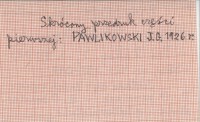 Skrócony przedruk części
pierwszej: PAWLIKOWSKI J.G. 1926 r.